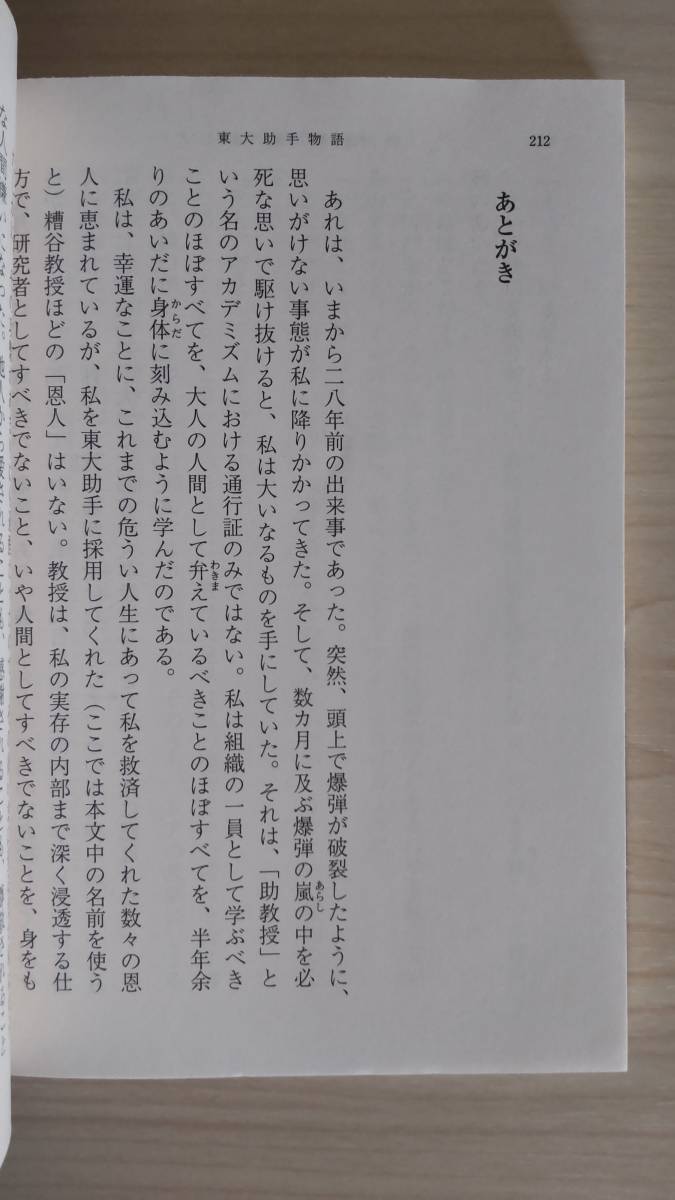 東大助手物語
212
あとがき
あれは、いまから二八年前の出来事であった。突然、頭上で爆弾が破裂したように、
思いがけない事態が私に降りかかってきた。そして、数カ月に及ぶ爆弾の嵐の中を必
死な思いで駆け抜けると、私は大いなるものを手にしていた。それは、「助教授」と
いう名のアカデミズムにおける通行証のみではない。私は組織の一員として学ぶべき
ことのほぼすべてを、大人の人間として弁えているべきことのほぼすべてを、半年余
りのあいだに身体に刻み込むように学んだのである。
私は、幸運なことに、これまでの危うい人生にあって私を救済してくれた数々の恩
人に恵まれているが、私を東大助手に採用してくれた（ここでは本文中の名前を使う
と）糟谷教授ほどの「恩人」はいない。教授は、私の実存の内部まで深く浸透する仕
方で、研究者としてすべきでないこと、いや人間としてすべきでないことを、身をも